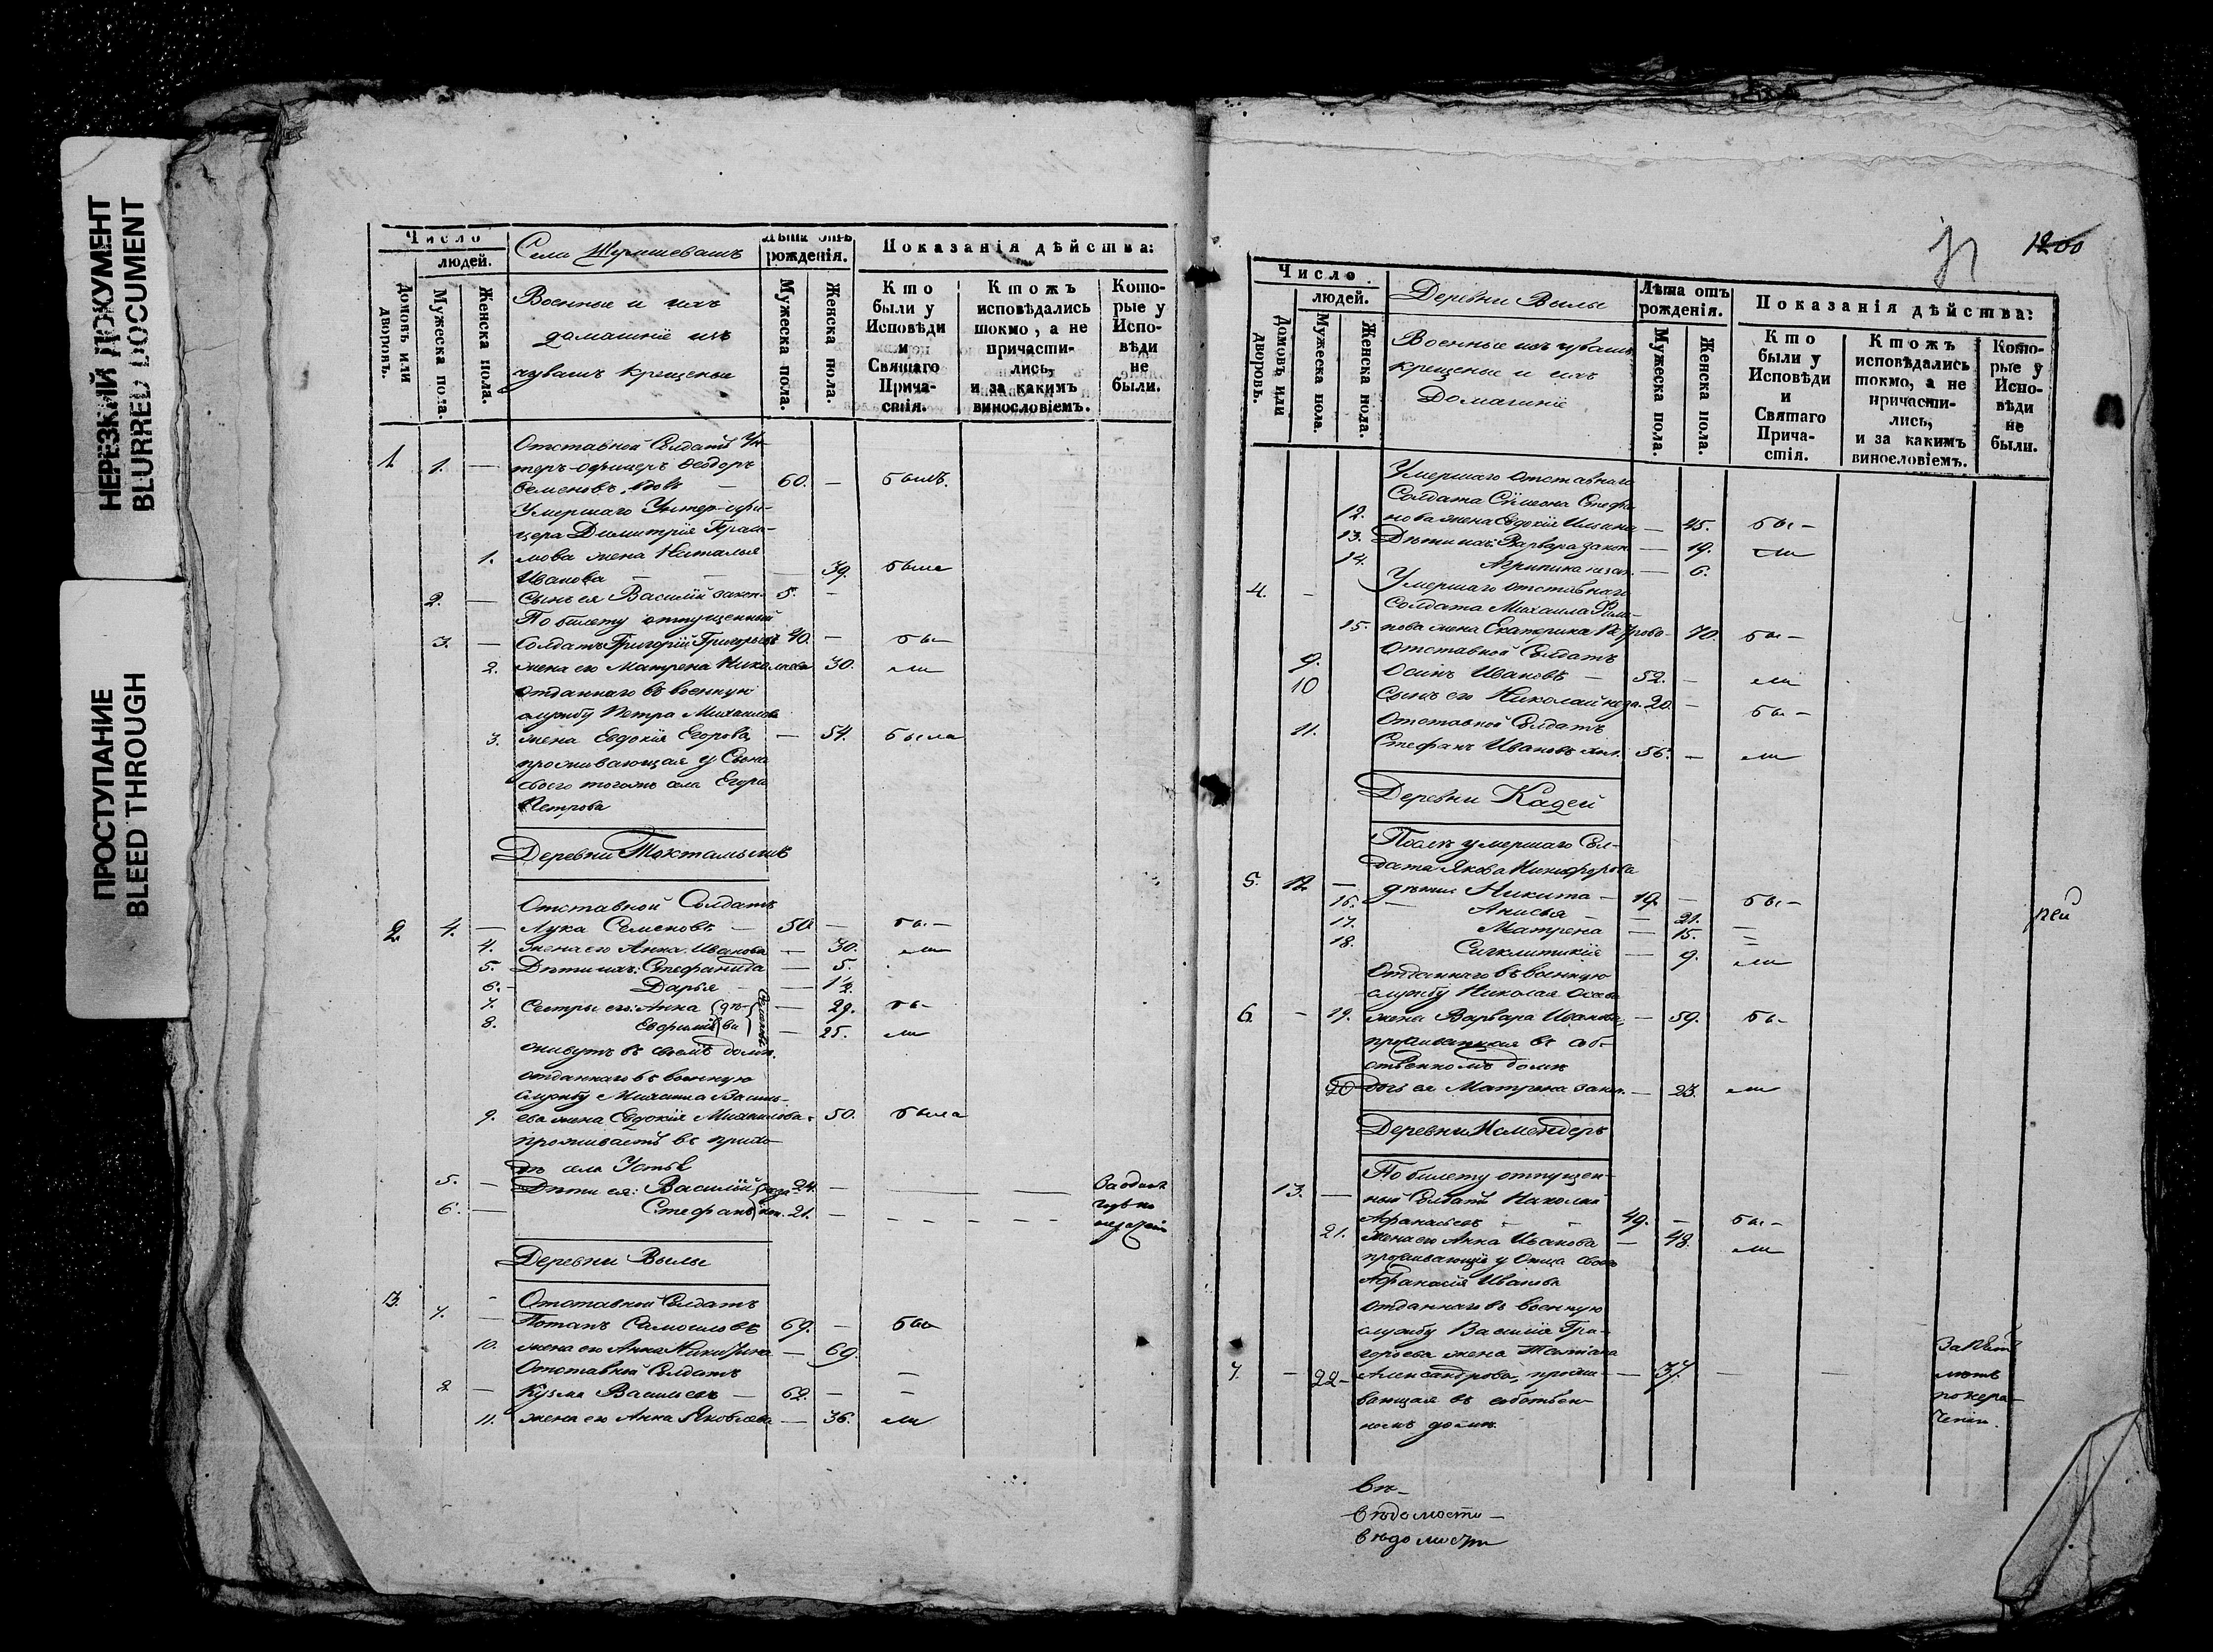 НЕРЕЗКИЙ ДОКУМЕНТ
BLURRED DOCUMENT
ПРОСТУПАНИЕ
BLEED THROUGH
Число
людей.
Домовъ или дворовъ.
Мужеска пола.
Женска пола.
Села
Военные и ихъ
домашніе изъ
чувашъ крещеные
Лѣта отъ
рожденія.
Мужеска пола.
Женска пола.
Показанія дѣйства:
Кто
были у
Исповѣди
и
Святаго
Прича-
стія.
Ктожъ
исповѣдались
токмо, а не
причасти-
лись,
и за какимъ
винословіемъ.
Кото-
рые у
Испо-
вѣди
не
были.
Отставной Солдатъ Ун-
1. 1. — теръ-офицеръ Ѳеодоръ
Семеновъ, вдовъ — 60. — былъ.
Умершаго Унтер-офи-
цера Димитрія Герас-
1. мова жена Наталья
Иванова — — 39. была
2. — Сынъ ея Василій закон. 5. —
По билету отпущенный
3. — Солдатъ Григорій Григорьевъ 40. — бы-
2. жена его Матрена Николаева 30. ли
отданнаго въ военную
службу Петра Михаилова
3. жена Евдокія Егорова, — 54. была
проживающая у Сына
своего тогожъ села Егора
Петрова
Деревни Токтамышъ
Отставной Солдатъ
2. 4. — Лука Семеновъ — 50. — бы-
4. жена его Анна Иванова — 30. ли
5. Дѣти ихъ: Стефанида — 5.
6. Дарья — 1½
7. Сестры его: Анна дѣ- — 29. бы-
8. Евфимія ви — 25. ли
живутъ въ своемъ домѣ.
отданнаго въ военную
службу Михаила Василь-
9. ева жена Евдокія Михаилова — 50. была
проживаетъ въ прихо-
дѣ села Устья
5. — Дѣти ея: Василій неза- 24. — —
6. — Стефанъ кон. 21. —
Деревни Вылы
3. Отставной Солдатъ
7. — Потапъ Самоиловъ 69. — бы-
10. жена его Анна Никитина — 69.
Отставной Солдатъ —
— Кузма Васильевъ — 62. —
11. жена его Анна Яковлева — 36. ли
1200
Число
людей.
Домовъ или дворовъ.
Мужеска пола.
Женска пола.
Деревни Вылы
Военные изъ чувашъ
крещеные и ихъ
Домашніе
Лѣта отъ
рожденія.
Мужеска пола.
Женска пола.
Показанія дѣйства:
Кто
были у
Исповѣди
и
Святаго
Прича-
стія.
Ктожъ
исповѣдались
токмо, а не
причасти-
лись,
и за какимъ
винословіемъ.
Кото-
рые у
Испо-
вѣди
не
были.
Умершаго отставнаго
Солдата Сѵмеона Стефа-
12. нова жена Евдокія Ильина — 45. бы-
13. Дѣти ихъ: Варвара закон. — 19. ли
14. Агрипина незак. — 6.
4. — Умершаго отставнаго
Солдата Михаила Фили-
15. пова жена Екатерина Петрова — 70. бы-
Отставной Солдатъ
9. Осипъ Ивановъ — 52. — ли
10 Сынъ его Николай неза. 20. — бы-
Отставной Солдатъ
11. Стефанъ Ивановъ 56. — ли
Деревни Кадей
Послѣ умершаго Сол-
дата Якова Никифорова
5. 12 — дѣти: Никита — 19. — бы-
16. — Анисья — — 21.
17. Матрена — 15. —
18. Сигклитикія — 9. ли
Отданнаго въ военную
службу Николая
6. — 19. жена Варвара Иванова, — 59. бы-
проживающая въ соб-
ственномъ домѣ
20 дочь ея Матрена закон. — 23. ли
Деревни Исмендеръ
По билету отпущен-
13. — ный Солдатъ Николай
Афанасьевъ — — 49. — бы-
21. жена его Анна Иванова — 48. ли
проживающіе у Отца своего
Афанасія Иванова
отданнаго въ военную
службу Василія Гри-
горьева жена Татіана
7. — 22 — Александрова, прожи- — 37. — —
вающая въ собствен-
номъ домѣ.
вѣ-
вѣдомости —
вѣдомости